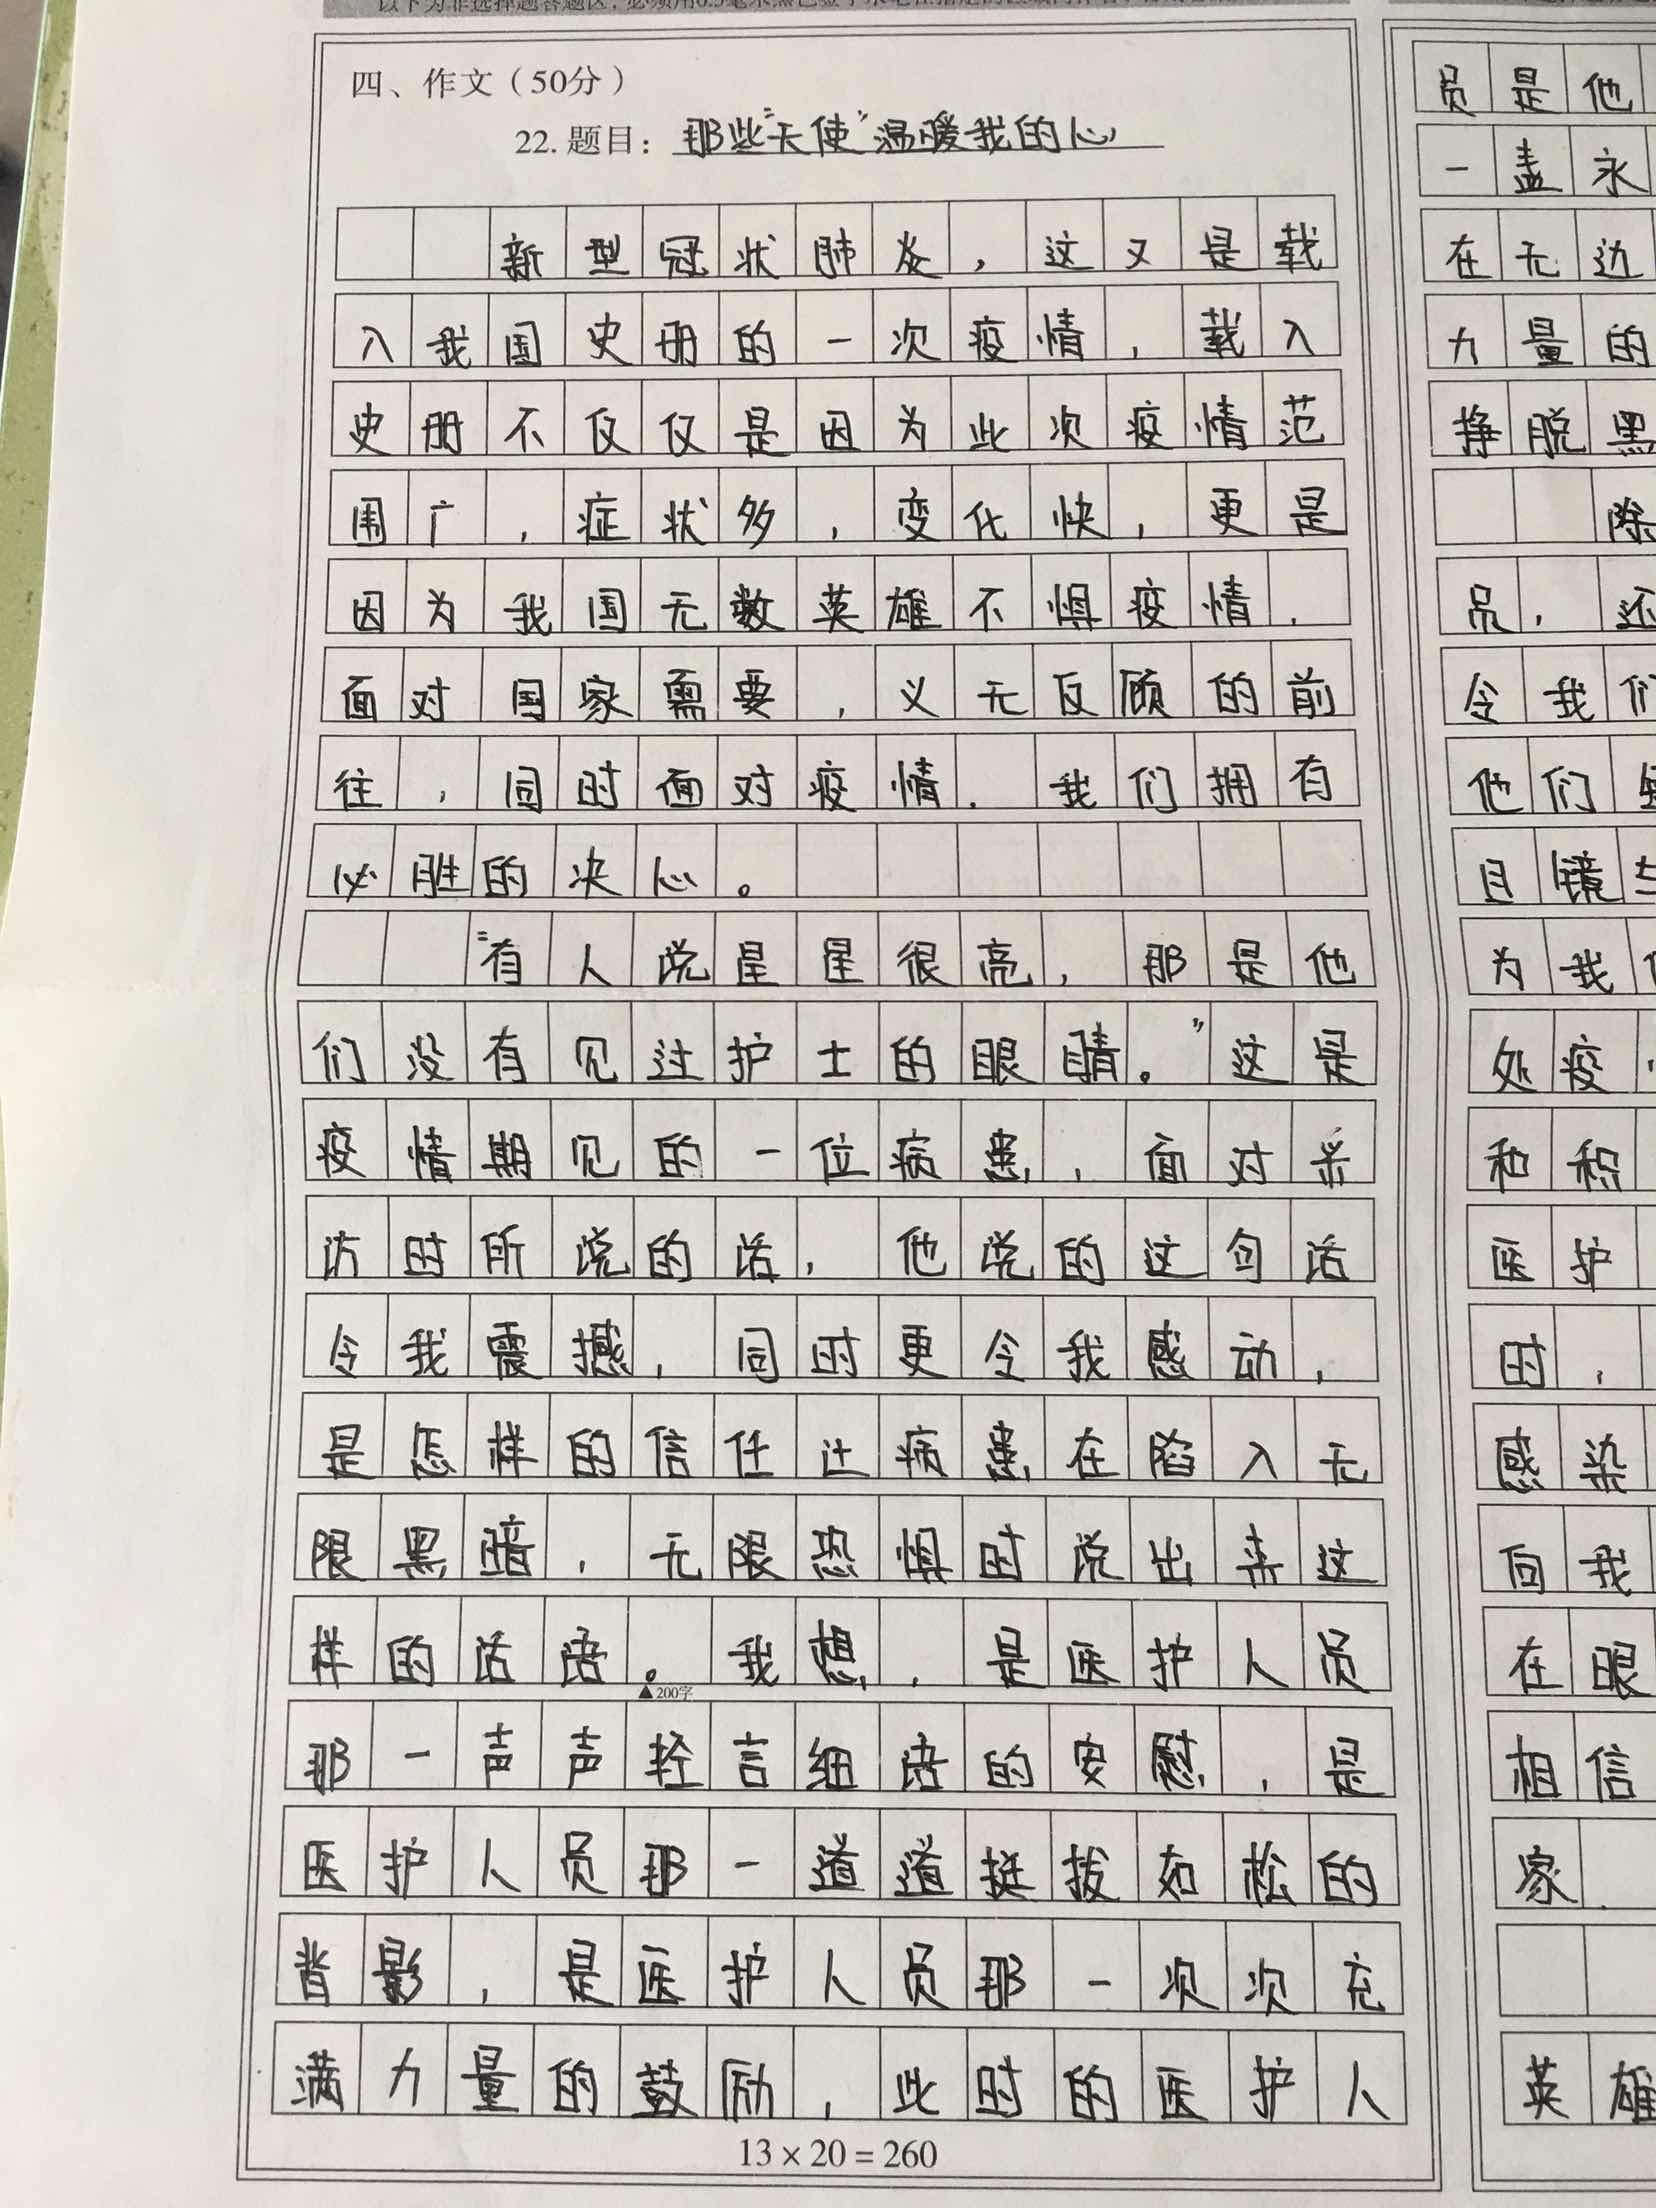 四、作文（50分）
22. 题目：那些"天使"温暖我的心
新型冠状肺炎，这又是载
入我国史册的一次疫情，载入
史册不仅仅是因为此次疫情范
围广，症状多，变化快，更是
因为我国无数英雄不惧疫情，
面对国家需要，义无反顾的前
往，同时面对疫情，我们拥有
必胜的决心。
"有人说星星很亮，那是他
们没有见过护士的眼睛。"这是
疫情期见的一位病患，面对采
访时所说的话，他说的这句话
令我震撼，同时更令我感动，
是怎样的信任让病患在陷入无
限黑暗，无限恐惧时说出来这
样的话语。我想，是医护人员
▲200字
那一声声轻言细语的安慰，是
医护人员那一道道挺拔如松的
背影，是医护人员那一次次充
满力量的鼓励，此时的医护人
13×20=260
员是他
一盏永
在无边
力量的
挣脱黑
除
员，还
令我们
他们
目镜
为我
处疫
和积
医护
时，
感染
向我
在眼
相信
家
英雄